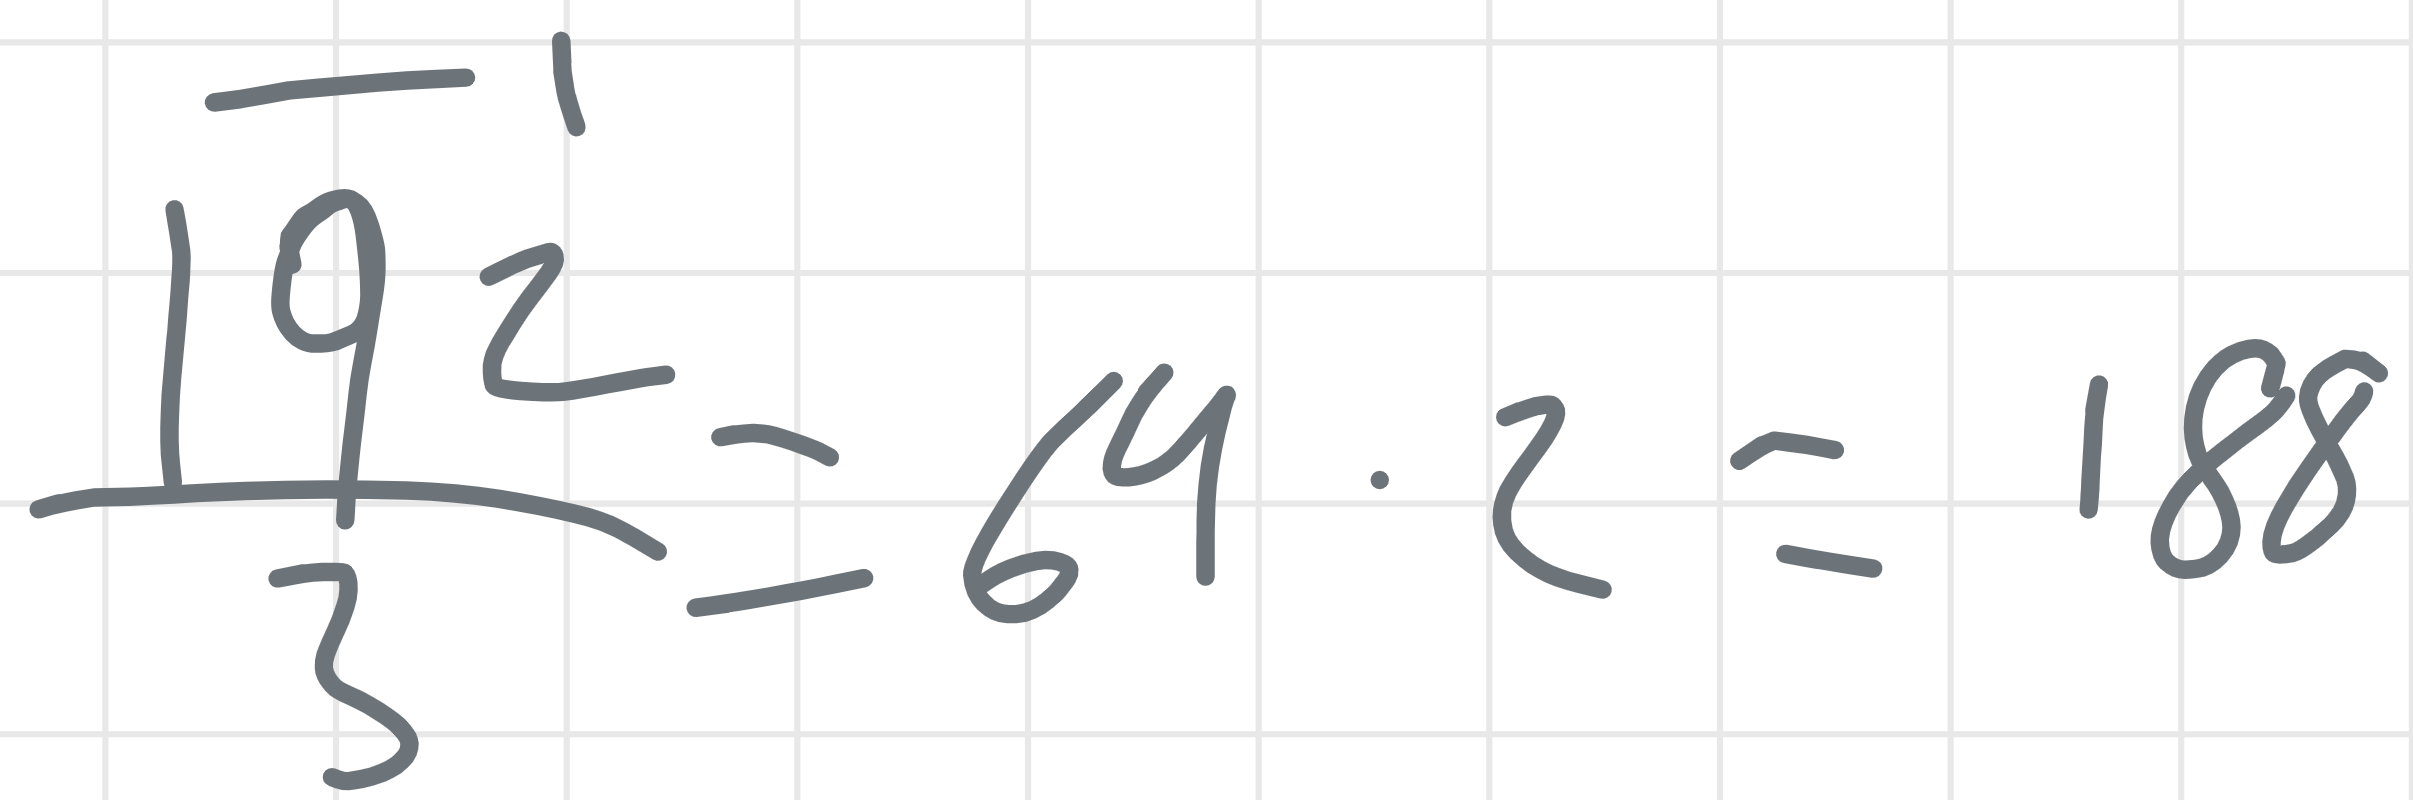 — 1
192
3
= 64 · 2 = 188